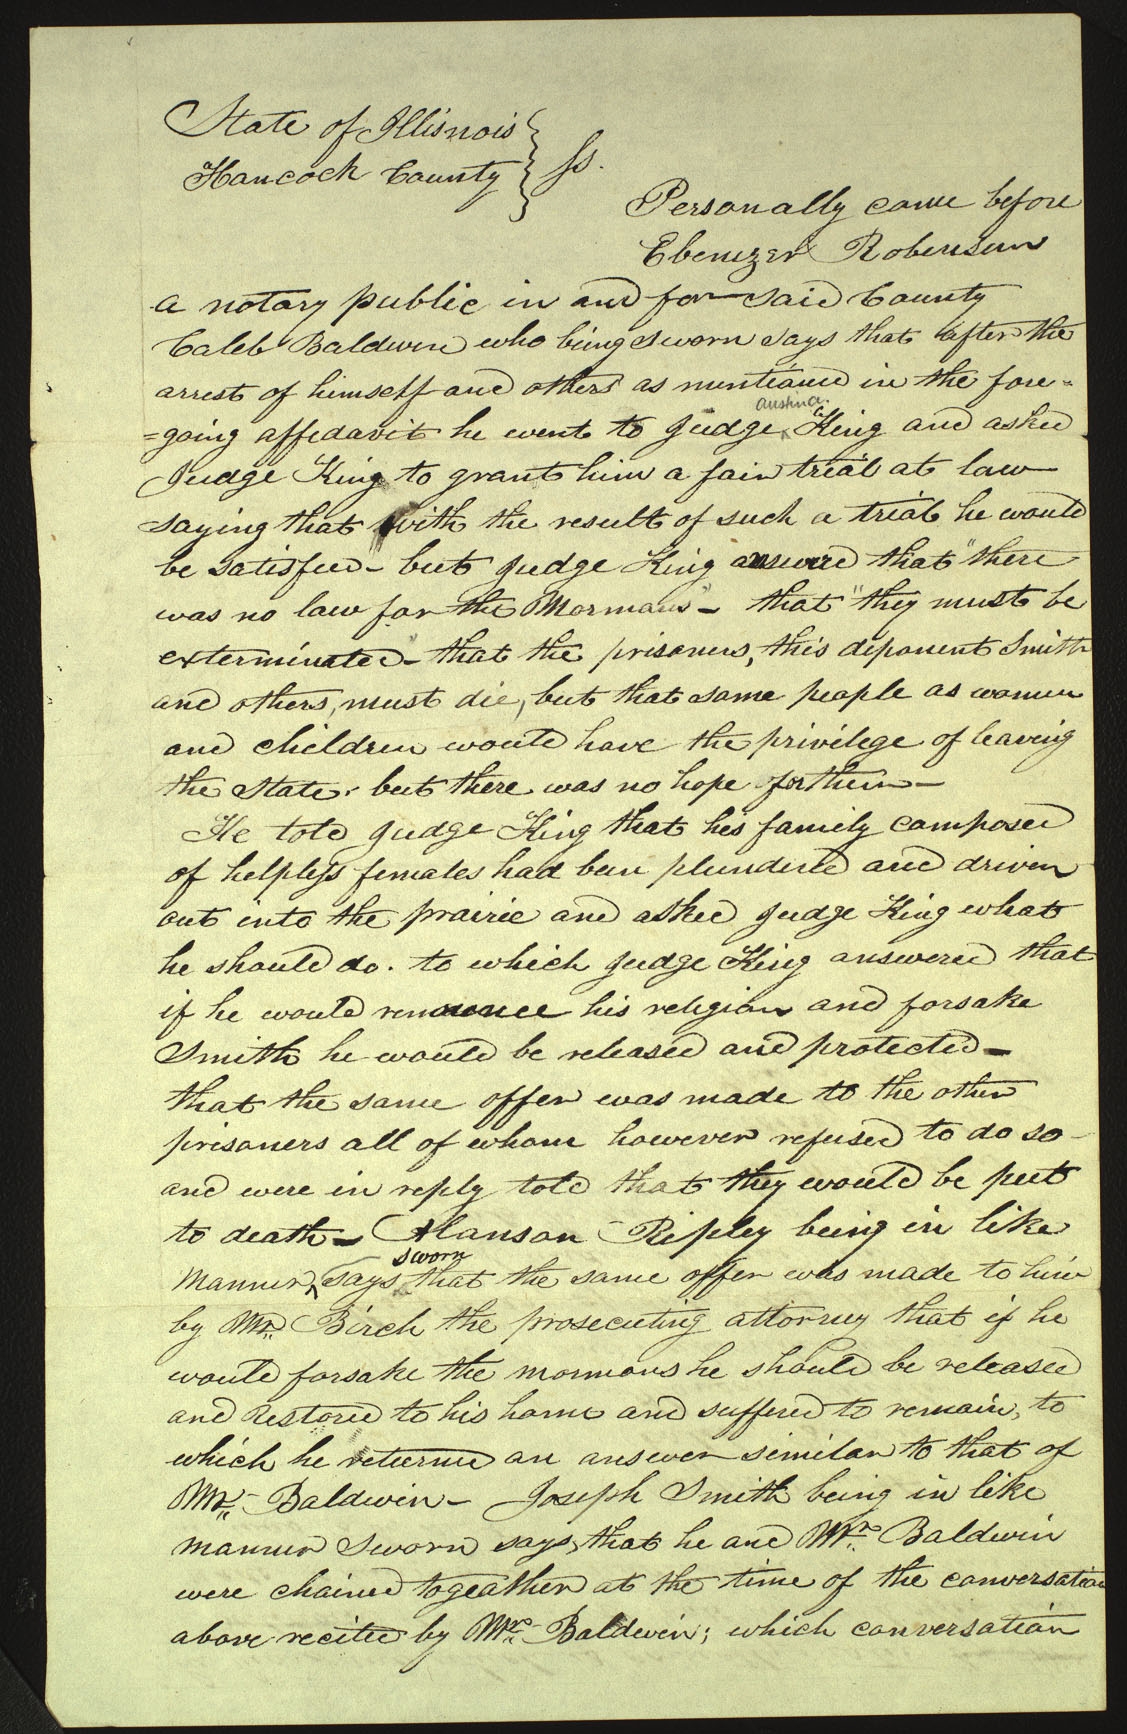 State of Illisnois
Hancock County } ss.
Personally came before
Ebenezer Robinson
a notary public in and for said County
Caleb Baldwin who being sworn says that after the
arrest of himself and others as mentioned in the fore=
=going affidavit he went to Judge King and asked
austin a.
Judge King to grant him a fair trial at law
saying that with the result of such a trial he would
be satisfied – but Judge King answered that "there
was no law for the Mormons" – that "they must be
exterminated" – that the prisoners, this deponent Smith
and others, must die, but that some people as women
and children would have the privilege of leaving
the State. but there was no hope for them –
He told Judge King that his family composed
of helpless females had been plundered and driven
out into the prairie and asked Judge King what
he should do. to which Judge King answered that
if he would renounce his religion and forsake
Smith he would be released and protected –
that the same offer was made to the other
prisoners all of whom however refused to do so –
and were in reply told that they would be put
to death – Alanson Ripley being in like
sworn
manner ^ says that the same offer was made to him
by Mr. Birch the prosecuting attorney that if he
would forsake the mormons he should be released
and Restored to his home and suffered to remain, to
which he returned an answer similar to that of
Mr. Baldwin – Joseph Smith being in like
manner sworn says, that he and Mr. Baldwin
were chained togeather at the time of the conversation
above recited by Mr. Baldwin; which conversation